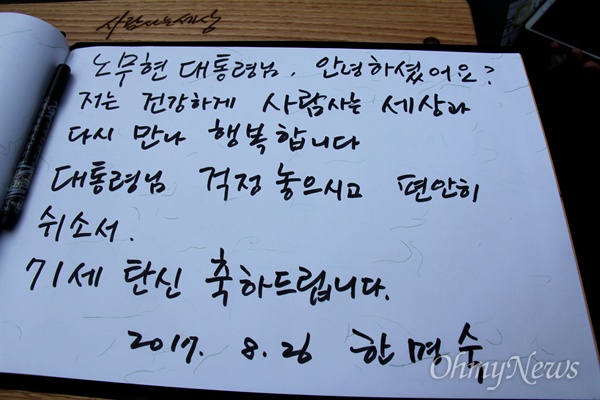 사람사는세상
노무현 대통령님, 안녕하셨어요?
저는 건강하게 사람사는 세상과
다시 만나 행복합니다
대통령님 걱정 놓으시고 편안히
쉬소서.
71세 탄신 축하드립니다.
2017. 8. 26 한명숙
OhmyNews